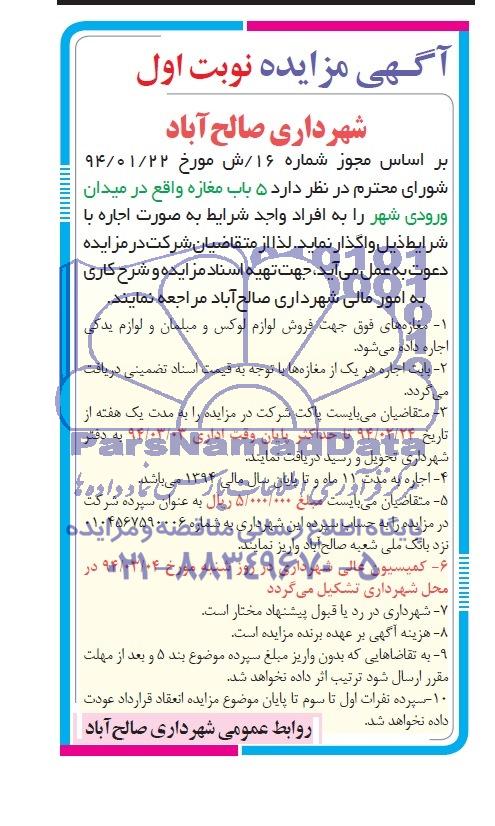 آگهی مزایده نوبت اول
شهرداری صالح‌آباد
بر اساس مجوز شماره ۱۶/ش مورخ ۹۴/۰۱/۲۲
شورای محترم در نظر دارد ۵ باب مغازه واقع در میدان
ورودی شهر را به افراد واجد شرایط به صورت اجاره با
شرایط ذیل واگذار نماید. لذا از متقاضیان شرکت در مزایده
دعوت به عمل می‌آید. جهت تهیه اسناد مزایده و شرح کاری
به امور مالی شهرداری صالح‌آباد مراجعه نمایند.
۱- مغازه‌های فوق جهت فروش لوازم لوکس و مبلمان و لوازم یدکی
اجاره داده می‌شود.
۲- بابت اجاره هر یک از مغازه‌ها با توجه به قیمت اسناد تضمینی دریافت
می‌گردد.
۳- متقاضیان می‌بایست پاکت شرکت در مزایده را به مدت یک هفته از
تاریخ ۹۴/۰۲/۲۴ تا حداکثر پایان وقت اداری ۹۴/۰۳/۰۳ به دفتر
شهرداری تحویل و رسید دریافت نمایند.
۴- اجاره به مدت ۱۱ ماه و تا پایان سال مالی ۱۳۹۴ می‌باشد.
۵- متقاضیان می‌بایست مبلغ ۵/۰۰۰/۰۰۰ ریال به عنوان سپرده شرکت
در مزایده را به حساب سپرده این شهرداری به شماره ۰۱۰۴۵۶۷۵۹۰۰۰۶
نزد بانک ملی شعبه صالح‌آباد واریز نمایند.
۶- کمیسیون عالی شهرداری در روز شنبه مورخ ۹۴/۰۳/۰۴ در
محل شهرداری تشکیل می‌گردد
۷- شهرداری در رد یا قبول پیشنهاد مختار است.
۸- هزینه آگهی بر عهده برنده مزایده است.
۹- به تقاضاهایی که بدون واریز مبلغ سپرده موضوع بند ۵ و بعد از مهلت
مقرر ارسال شود ترتیب اثر داده نخواهد شد.
۱۰-سپرده نفرات اول تا سوم تا پایان موضوع مزایده انعقاد قرارداد عودت
داده نخواهد شد.
روابط عمومی شهرداری صالح‌آباد
ParsNamadData
پایگاه اطلاع رسانی مناقصه و مزایده
۰۲۱-۸۸۳۴۹۶۷۰-۵